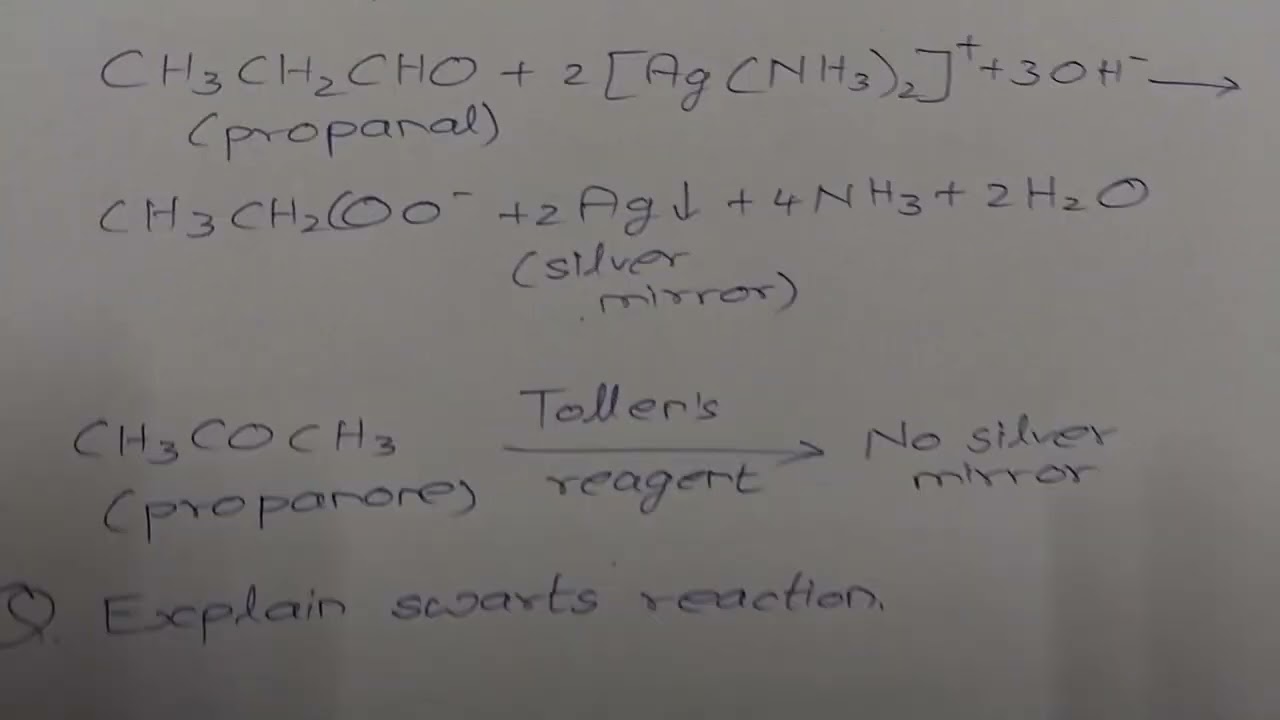 CH3CH2CHO + 2[Ag(NH3)2]+ + 3OH- →
(propanal)
CH3CH2COO- + 2Ag↓ + 4NH3 + 2H2O
(silver
mirror)
CH3COCH3 Tollen's reagent → No silver mirror
(propanone)
Q. Explain swarts reaction.